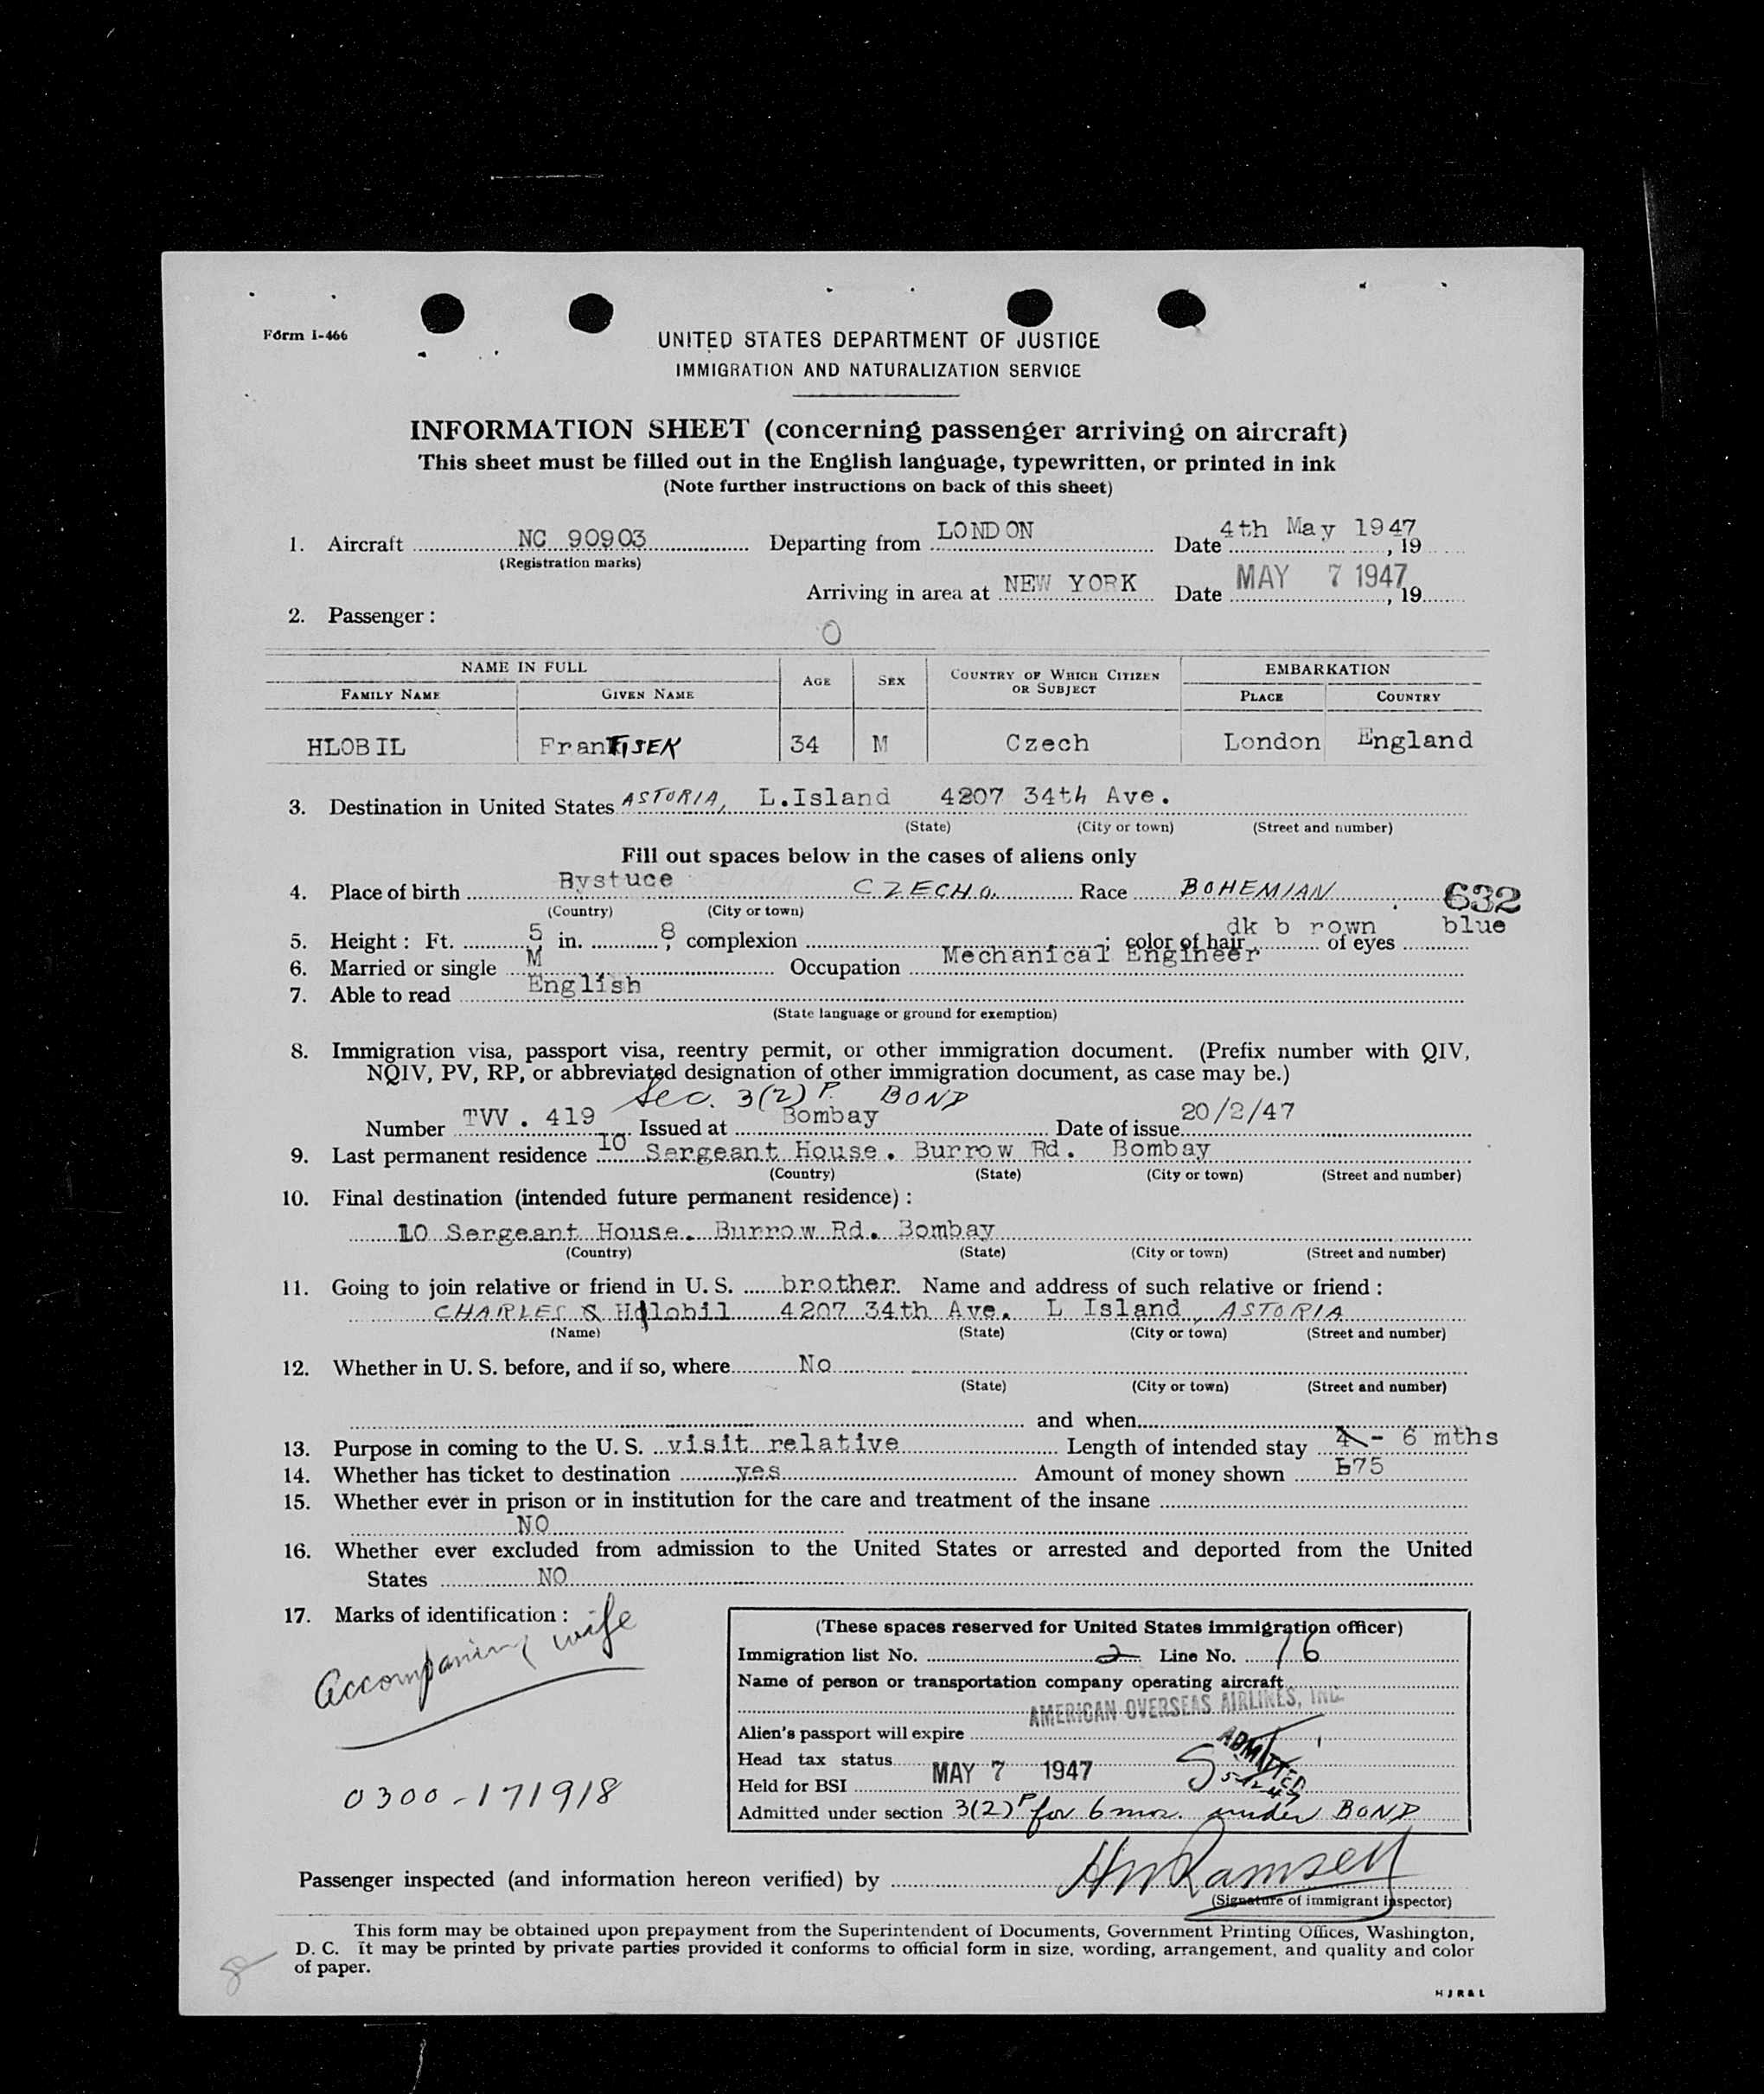 Form I-466
UNITED STATES DEPARTMENT OF JUSTICE
IMMIGRATION AND NATURALIZATION SERVICE
INFORMATION SHEET (concerning passenger arriving on aircraft)
This sheet must be filled out in the English language, typewritten, or printed in ink
(Note further instructions on back of this sheet)
1. Aircraft NC 90903 Departing from LONDON Date 4th May 1947, 19
(Registration marks)
Arriving in area at NEW YORK Date MAY 7 1947, 19
2. Passenger:
NAME IN FULL AGE SEX COUNTRY OF WHICH CITIZEN OR SUBJECT EMBARKATION
FAMILY NAME GIVEN NAME PLACE COUNTRY
HLOBIL FranTISEK 34 M Czech London England
3. Destination in United States ASTORIA, L.Island 4207 34th Ave.
(State) (City or town) (Street and number)
Fill out spaces below in the cases of aliens only
4. Place of birth Bystuce CZECHO. Race BOHEMIAN 632
(Country) (City or town)
5. Height: Ft. 5, in. 8, complexion ; color of hair dk b rown of eyes blue
6. Married or single M Occupation Mechanical Engineer
7. Able to read English
(State language or ground for exemption)
8. Immigration visa, passport visa, reentry permit, or other immigration document. (Prefix number with QIV,
NQIV, PV, RP, or abbreviated designation of other immigration document, as case may be.)
Sec. 3(2) P. BOND
Number TVV. 419 Issued at Bombay Date of issue 20/2/47
9. Last permanent residence 10 Sergeant House. Burrow Rd. Bombay
(Country) (State) (City or town) (Street and number)
10. Final destination (intended future permanent residence):
10 Sergeant House. Burrow Rd. Bombay
(Country) (State) (City or town) (Street and number)
11. Going to join relative or friend in U. S. brother Name and address of such relative or friend:
CHARLES Hlobil 4207 34th Ave. L Island, ASTORIA
(Name) (State) (City or town) (Street and number)
12. Whether in U. S. before, and if so, where No
(State) (City or town) (Street and number)
and when
13. Purpose in coming to the U. S. visit relative Length of intended stay 4 - 6 mths
14. Whether has ticket to destination yes Amount of money shown £75
15. Whether ever in prison or in institution for the care and treatment of the insane
NO
16. Whether ever excluded from admission to the United States or arrested and deported from the United
States NO
17. Marks of identification:
Accompaning wife
0300-171918
(These spaces reserved for United States immigration officer)
Immigration list No. 2 Line No. 16
Name of person or transportation company operating aircraft
AMERICAN OVERSEAS AIRLINES, INC.
Alien's passport will expire
ADMITTED
Head tax status
MAY 7 1947
Held for BSI
Admitted under section 3(2)P for 6 mos. under BOND
Passenger inspected (and information hereon verified) by HW Ramsell
(Signature of immigrant inspector)
This form may be obtained upon prepayment from the Superintendent of Documents, Government Printing Offices, Washington,
D. C. It may be printed by private parties provided it conforms to official form in size, wording, arrangement, and quality and color
of paper.
HJR&L